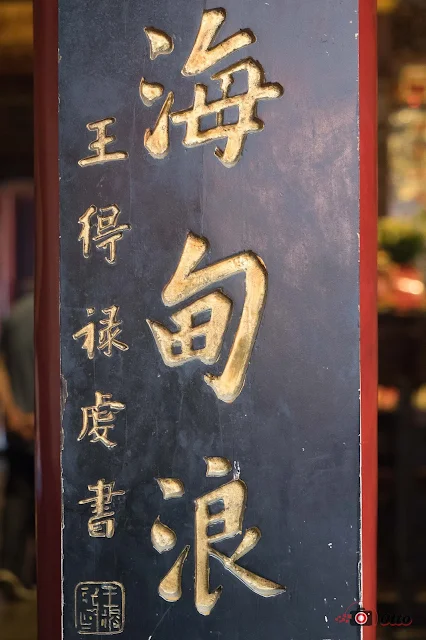 海甸浪
王得禄虔書